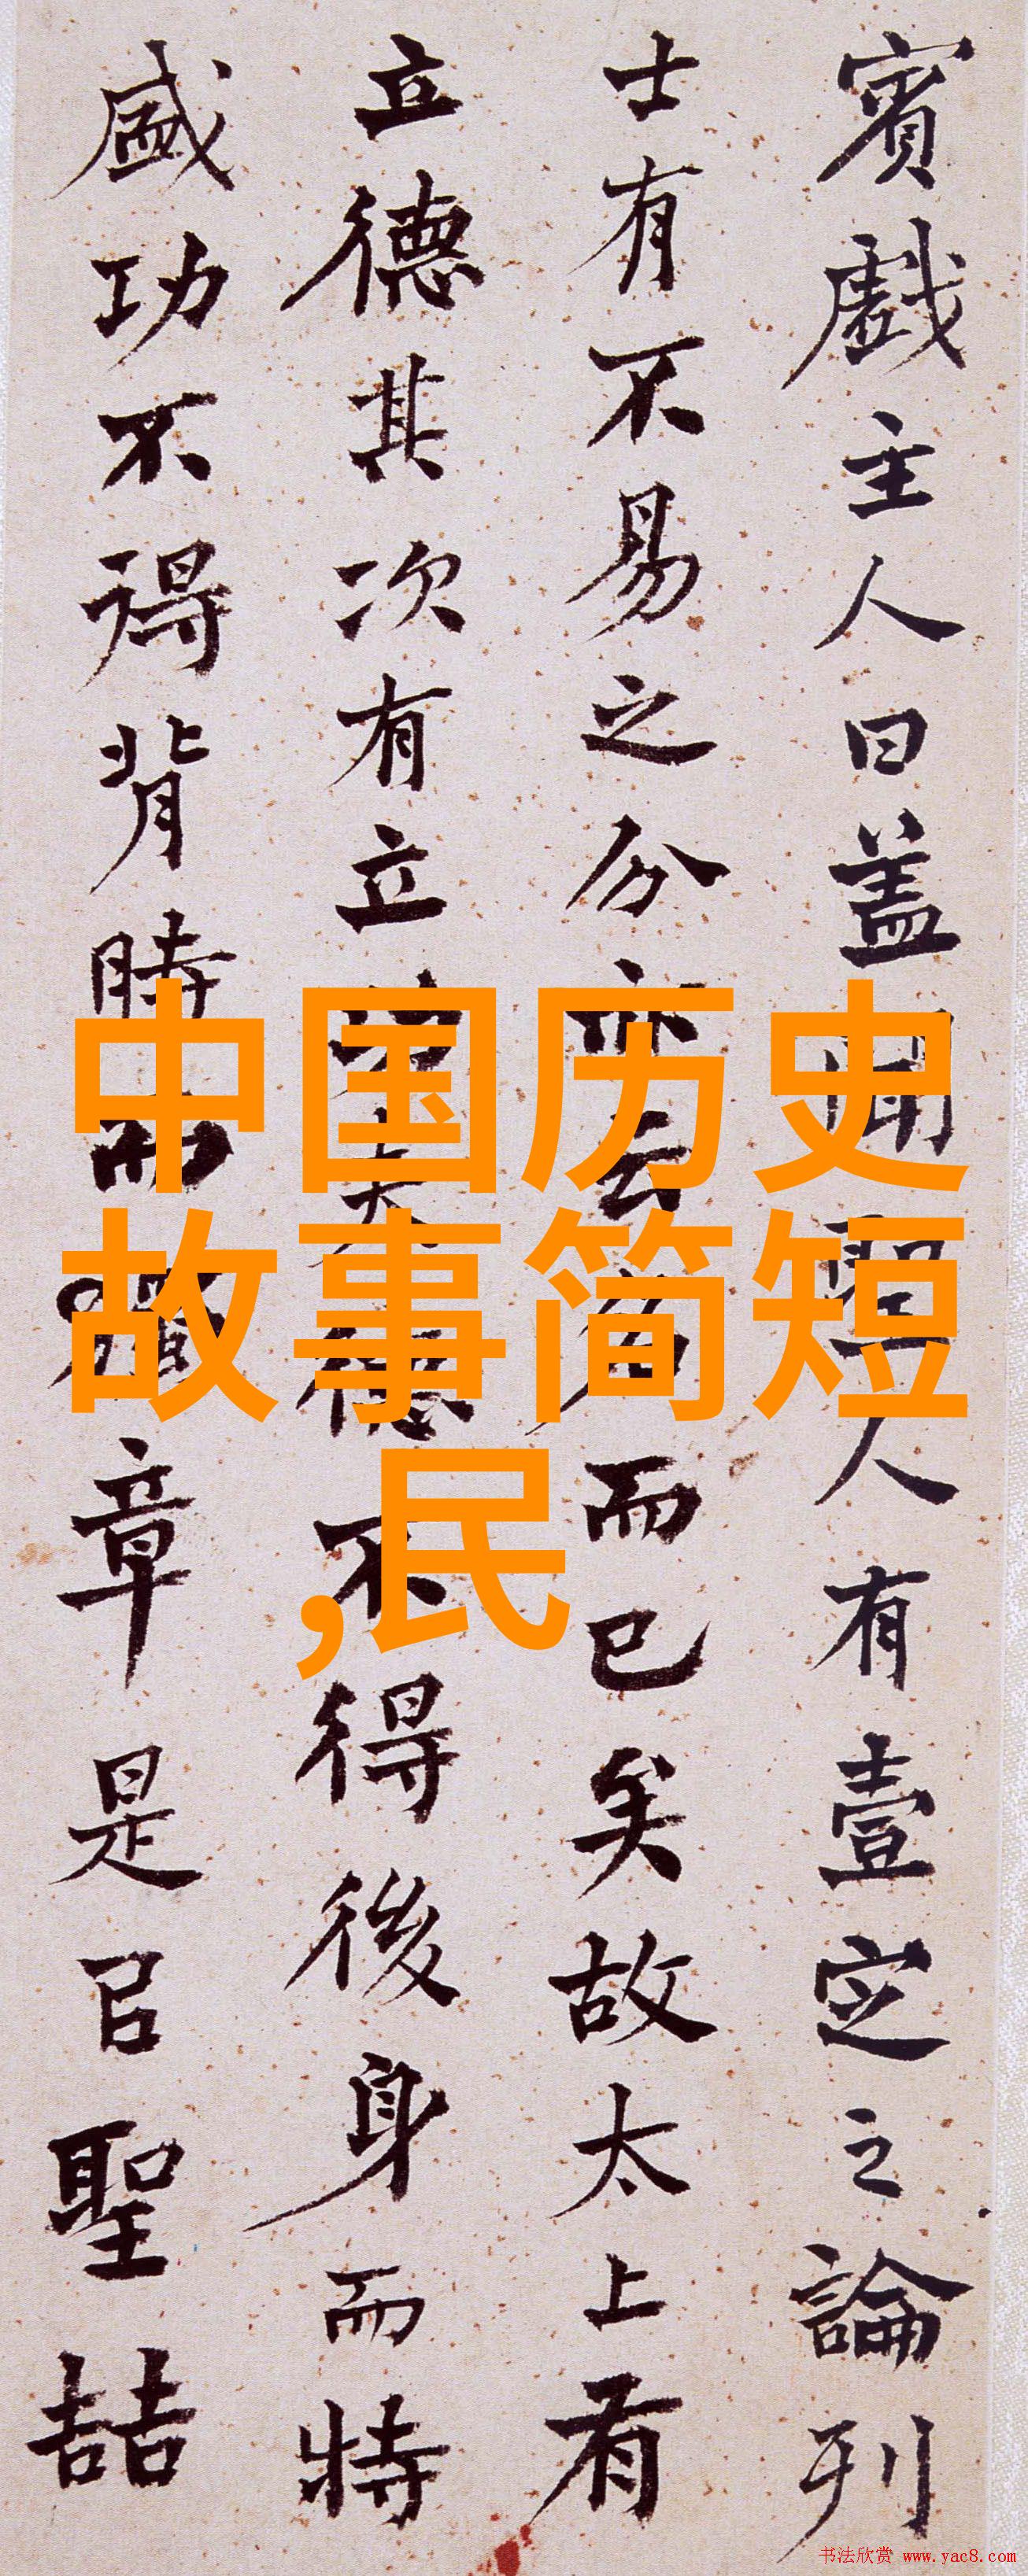 賓戲主人曰蓋聞聖人有壹定之論列
士有不易之分亦云名而已矣故太上有
立德其次有立功夫德不得後身而特
盛功不得背時而獨章是㠯聖喆
中国历史
故事简短
,民
书法欣赏 www.yac8.com